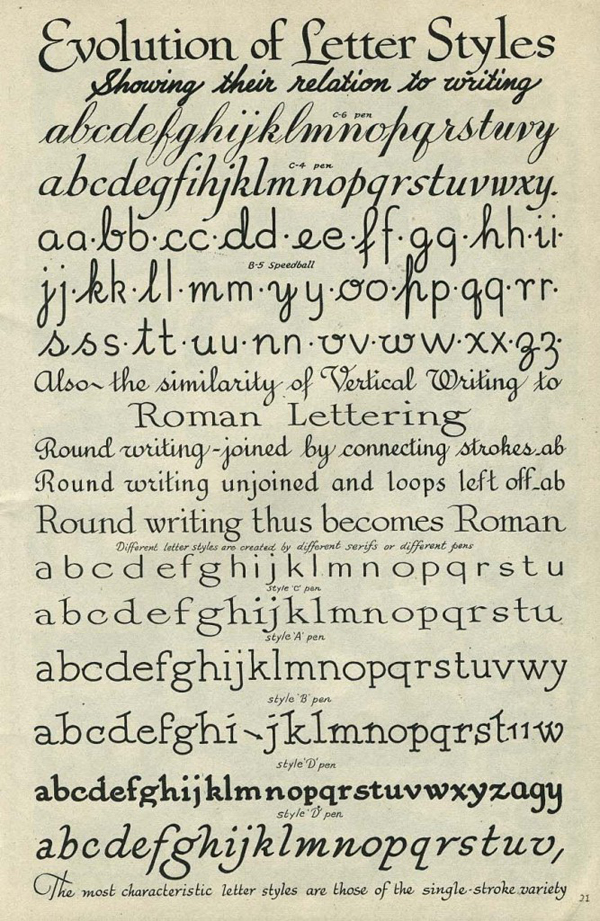 Evolution of Letter Styles
Showing their relation to writing
C-6 pen
abcdefghijklmnopqrstuvy
C-4 pen
abcdegfihjklmnopqrstuvwxy.
aa·bb·cc·dd·ee·ff·gg·hh·ii·
B-5 Speedball
jj·kk·ll·mm·yy·oo·pp·qq·rr·
sss·tt·uu·nn·vv·ww·xx·zz·
Also~ the similarity of Vertical Writing to
Roman Lettering
Round writing-joined by connecting strokes_ab
Round writing unjoined and loops left off_ab
Round writing thus becomes Roman
Different letter styles are created by different serifs or different pens
abcdefghijklmnopqrstu
Style 'C' pen
abcdefghijklmnopqrstu
style 'A' pen
abcdefghijklmnopqrstuvwy
style 'B' pen
abcdefghi jklmnopqrstuw
style 'D' pen
abcdefghijklmnopqrstuvwxyzagy
style 'D' pen
abcdefghijklmnopqrstuv,
The most characteristic letter styles are those of the single-stroke variety
21